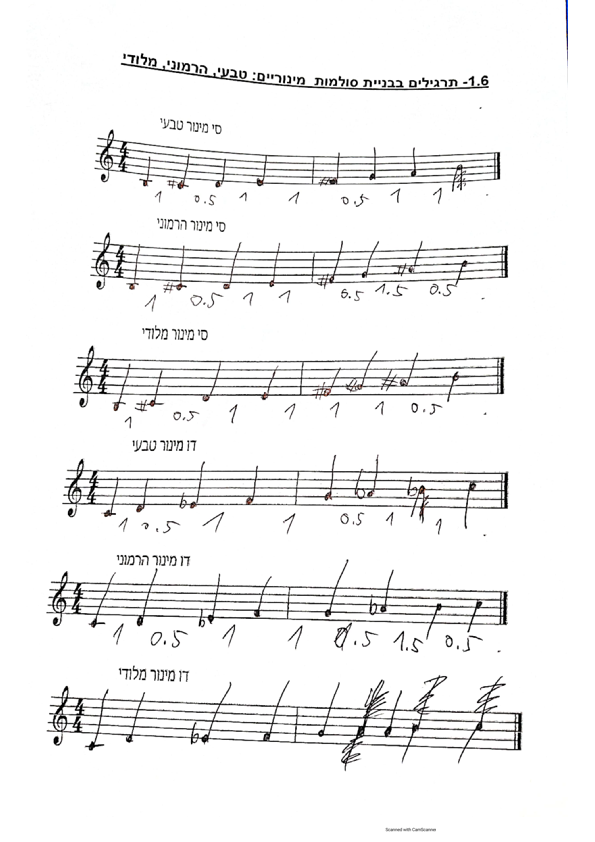 1.6- תרגילים בבניית סולמות מינוריים: טבעי, הרמוני, מלודי
סי מינור טבעי
4 4
1 0.5 1 1 0.5 1 1
סי מינור הרמוני
4 4
1 0.5 1 1 0.5 1.5 0.5
סי מינור מלודי
4 4
1 0.5 1 1 1 1 0.5
דו מינור טבעי
4 4
1 0.5 1 1 0.5 1 1
דו מינור הרמוני
4 4
1 0.5 1 1 0.5 1.5 0.5
דו מינור מלודי
4 4
Scanned with CamScanner